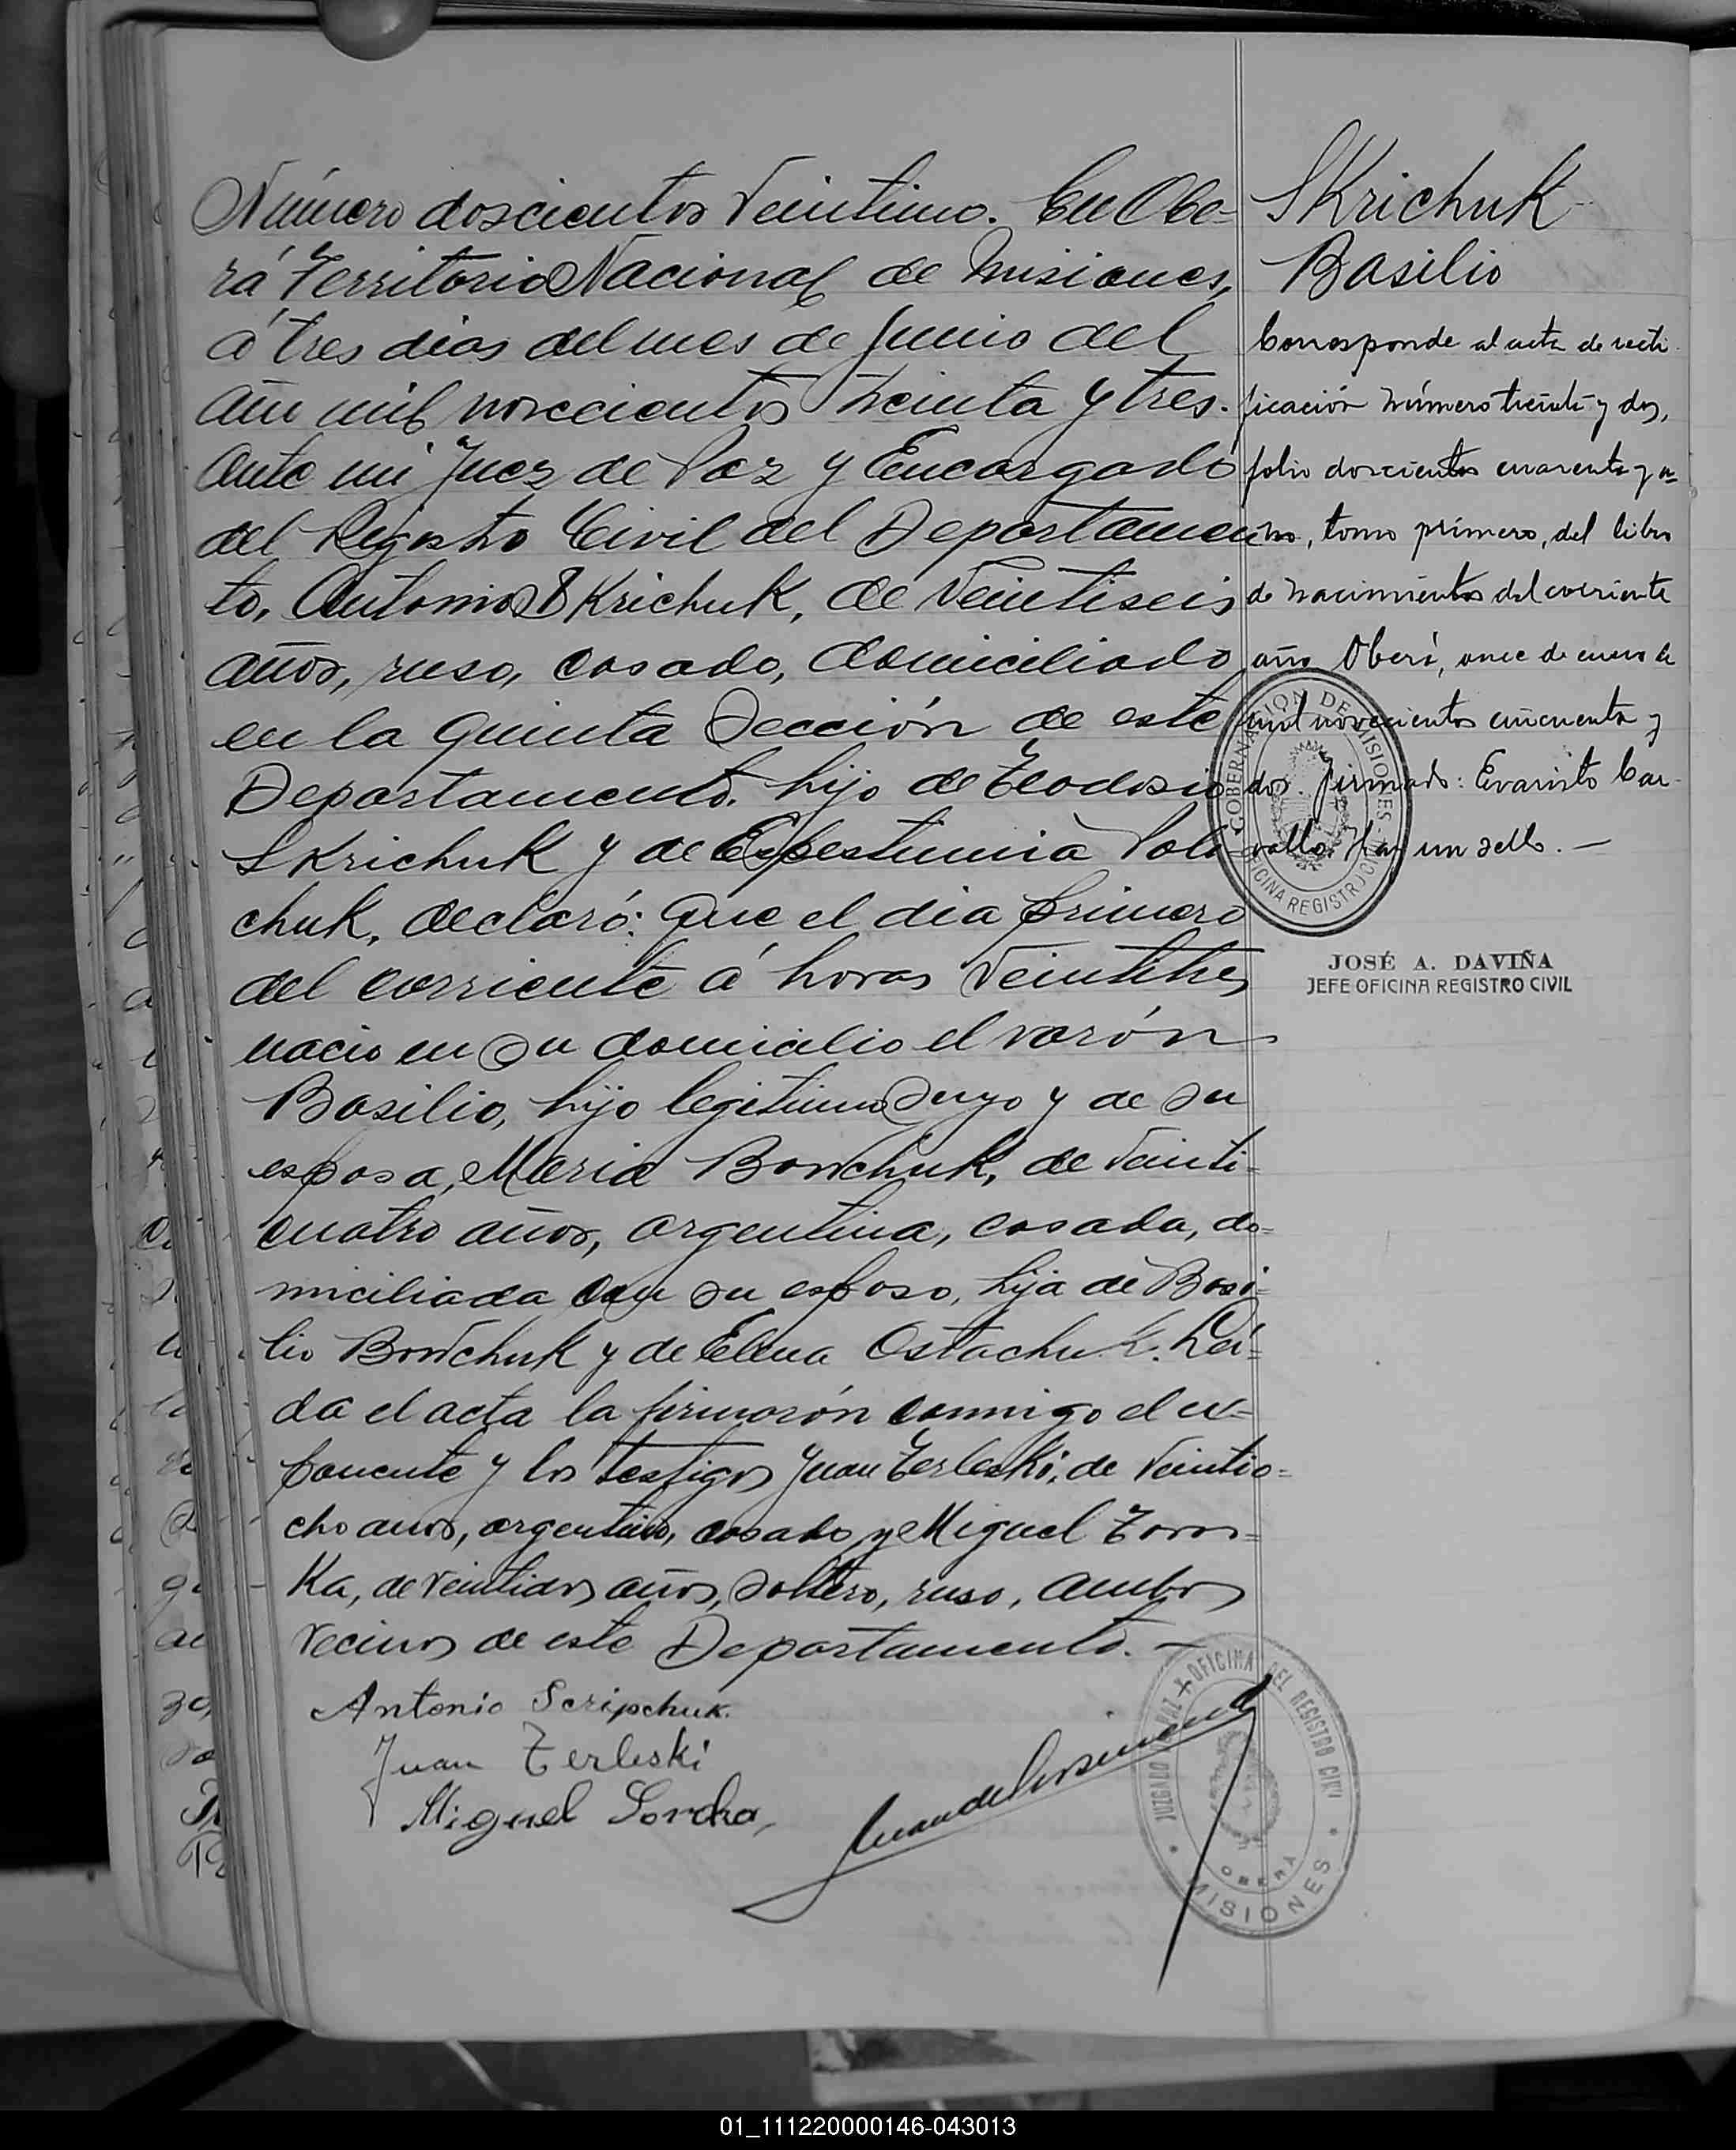 Número doscientos Veintiuno. En Obe-
rá Territorio Nacional de Misiones,
á tres dias del mes de Junio del
año mil novecientos treinta y tres.
Ante mi Juez de Paz y Encargado
del Registro Civil del Departamen
to, Antonio SKrichuK, de Veintiseis
años, ruso, casado, domiciliado
en la quinta Sección de este
Departamento, hijo de Teodosio
SKrichuK y de Poli
chuK, declaró: Que el dia primero
del corriente á horas Veintitres
nacio en su domicilio el varón
Basilio, hijo legitimo suyo y de su
esposa, Maria BowchuK, de Veinti-
cuatro años, argentina, casada, do-
miciliada con su esposo, hija de Basi-
lio BowchuK y de Elena OstachuK. Leí-
da el acta la firmarón conmigo el ex-
ponente y los testigos Juan TerlesKi, de Veintio-
cho años, argentino, casado y Miguel Zoros-
Ka, de veintidos años, soltero, ruso, ambos
vecinos de este Departamento. —
Antonio Scripchuk.
Juan Terleski
Miguel
SKrichuK
Basilio
Corresponde al acta de recti-
ficación número treinta y dos,
folio doscientos cuarenta y u-
no, tomo primero, del libro
de nacimientos del corriente
año Oberá, once de enero de
mil novecientos cincuenta y
dos. firmado: Evaristo Car-
vallo. Hay un sello. —
GOBERNACION DE MISIONES
OFICINA REGISTRO CIVIL
JOSÉ A. DAVIÑA
JEFE OFICINA REGISTRO CIVIL
JUZGADO DE PAZ Y OFICINA DEL REGISTRO CIVIL
OBERÁ
MISIONES
01_111220000146-043013